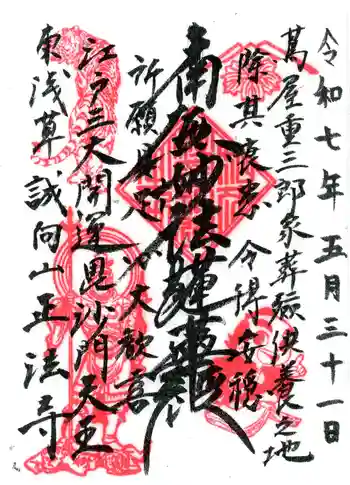 令和七年五月三十一日
蔦屋重三郎家葬歿供養之地
除其衰患 令得安穏
南無妙法蓮華経
祈願 大歓喜
江戸三大開運毘沙門天王
東浅草 誠向山正法寺